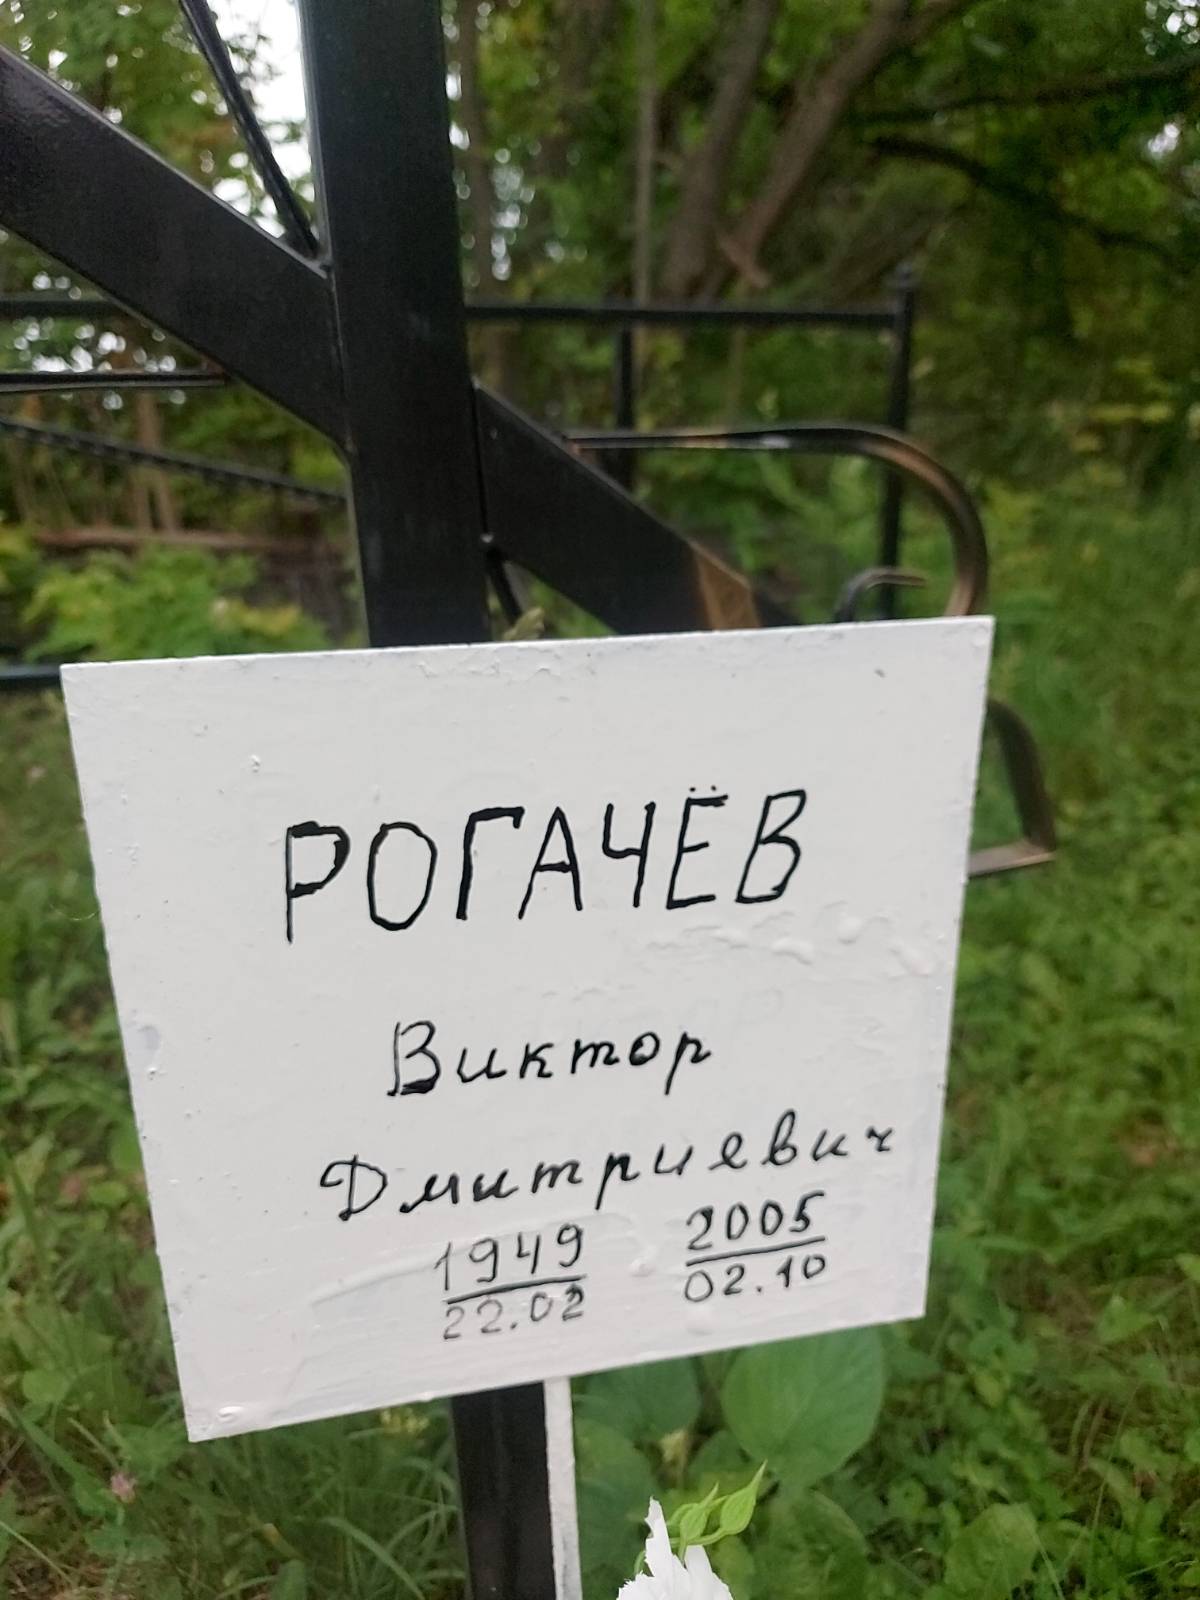 РОГАЧЁВ
Виктор
Дмитриевич
1949 2005
22.02 02.10